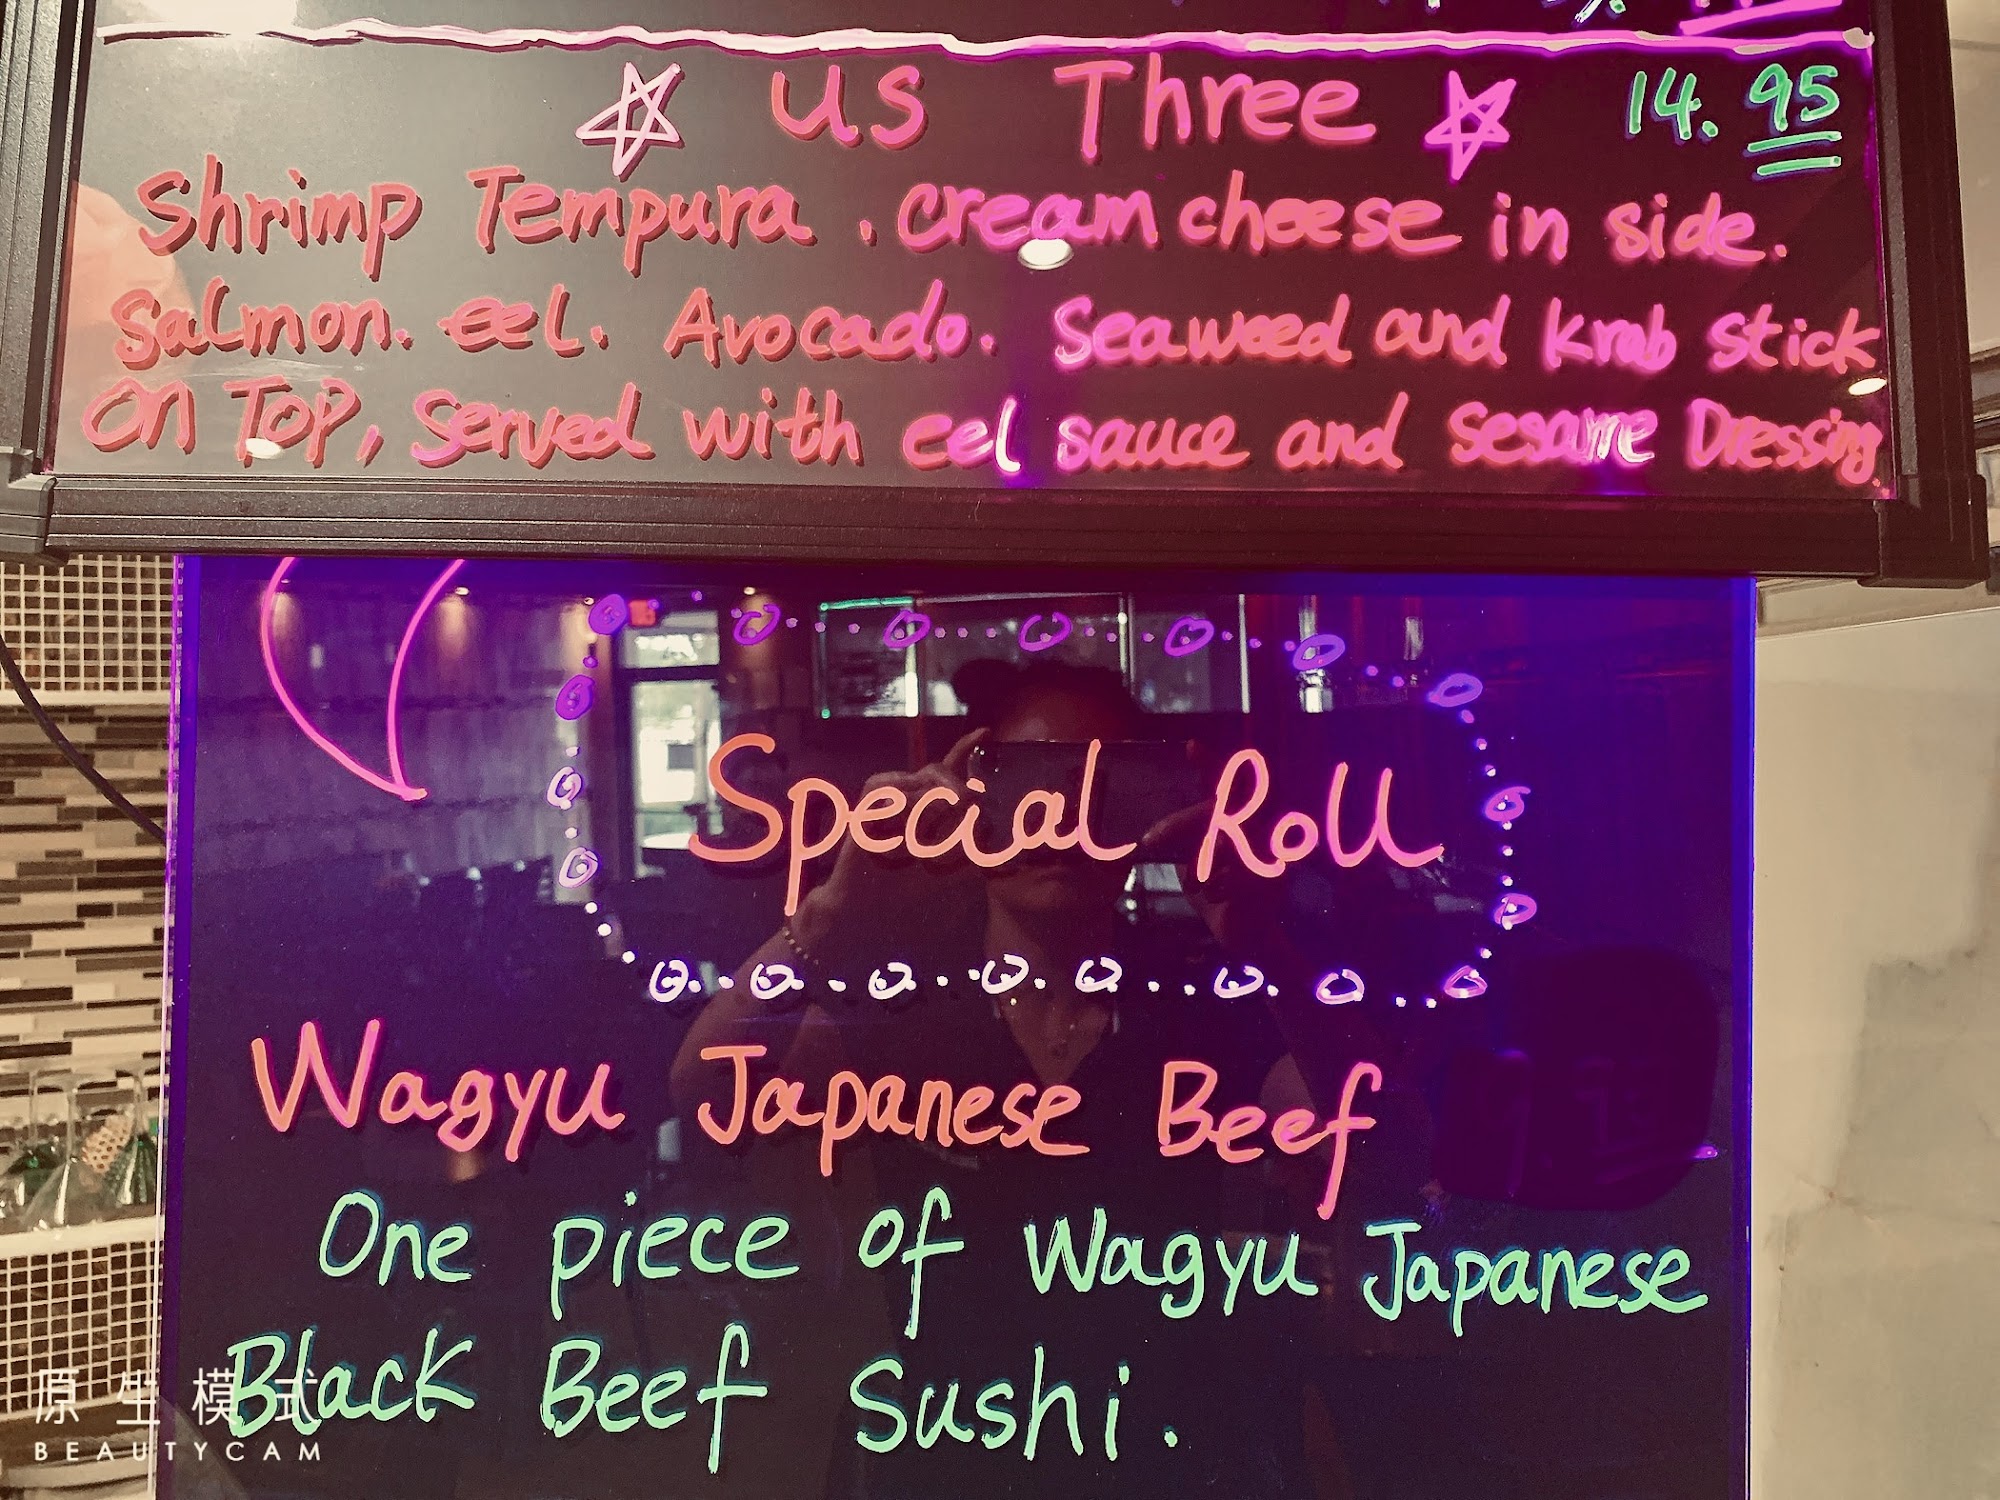 US Three 14.95
Shrimp Tempura . cream cheese in side.
Salmon. eel. Avocado. Seaweed and krab stick
on Top, Served with eel sauce and sesame Dressing
Special Roll
Wagyu Japanese Beef
One piece of Wagyu Japanese
Black Beef Sushi.
原生模式
BEAUTYCAM